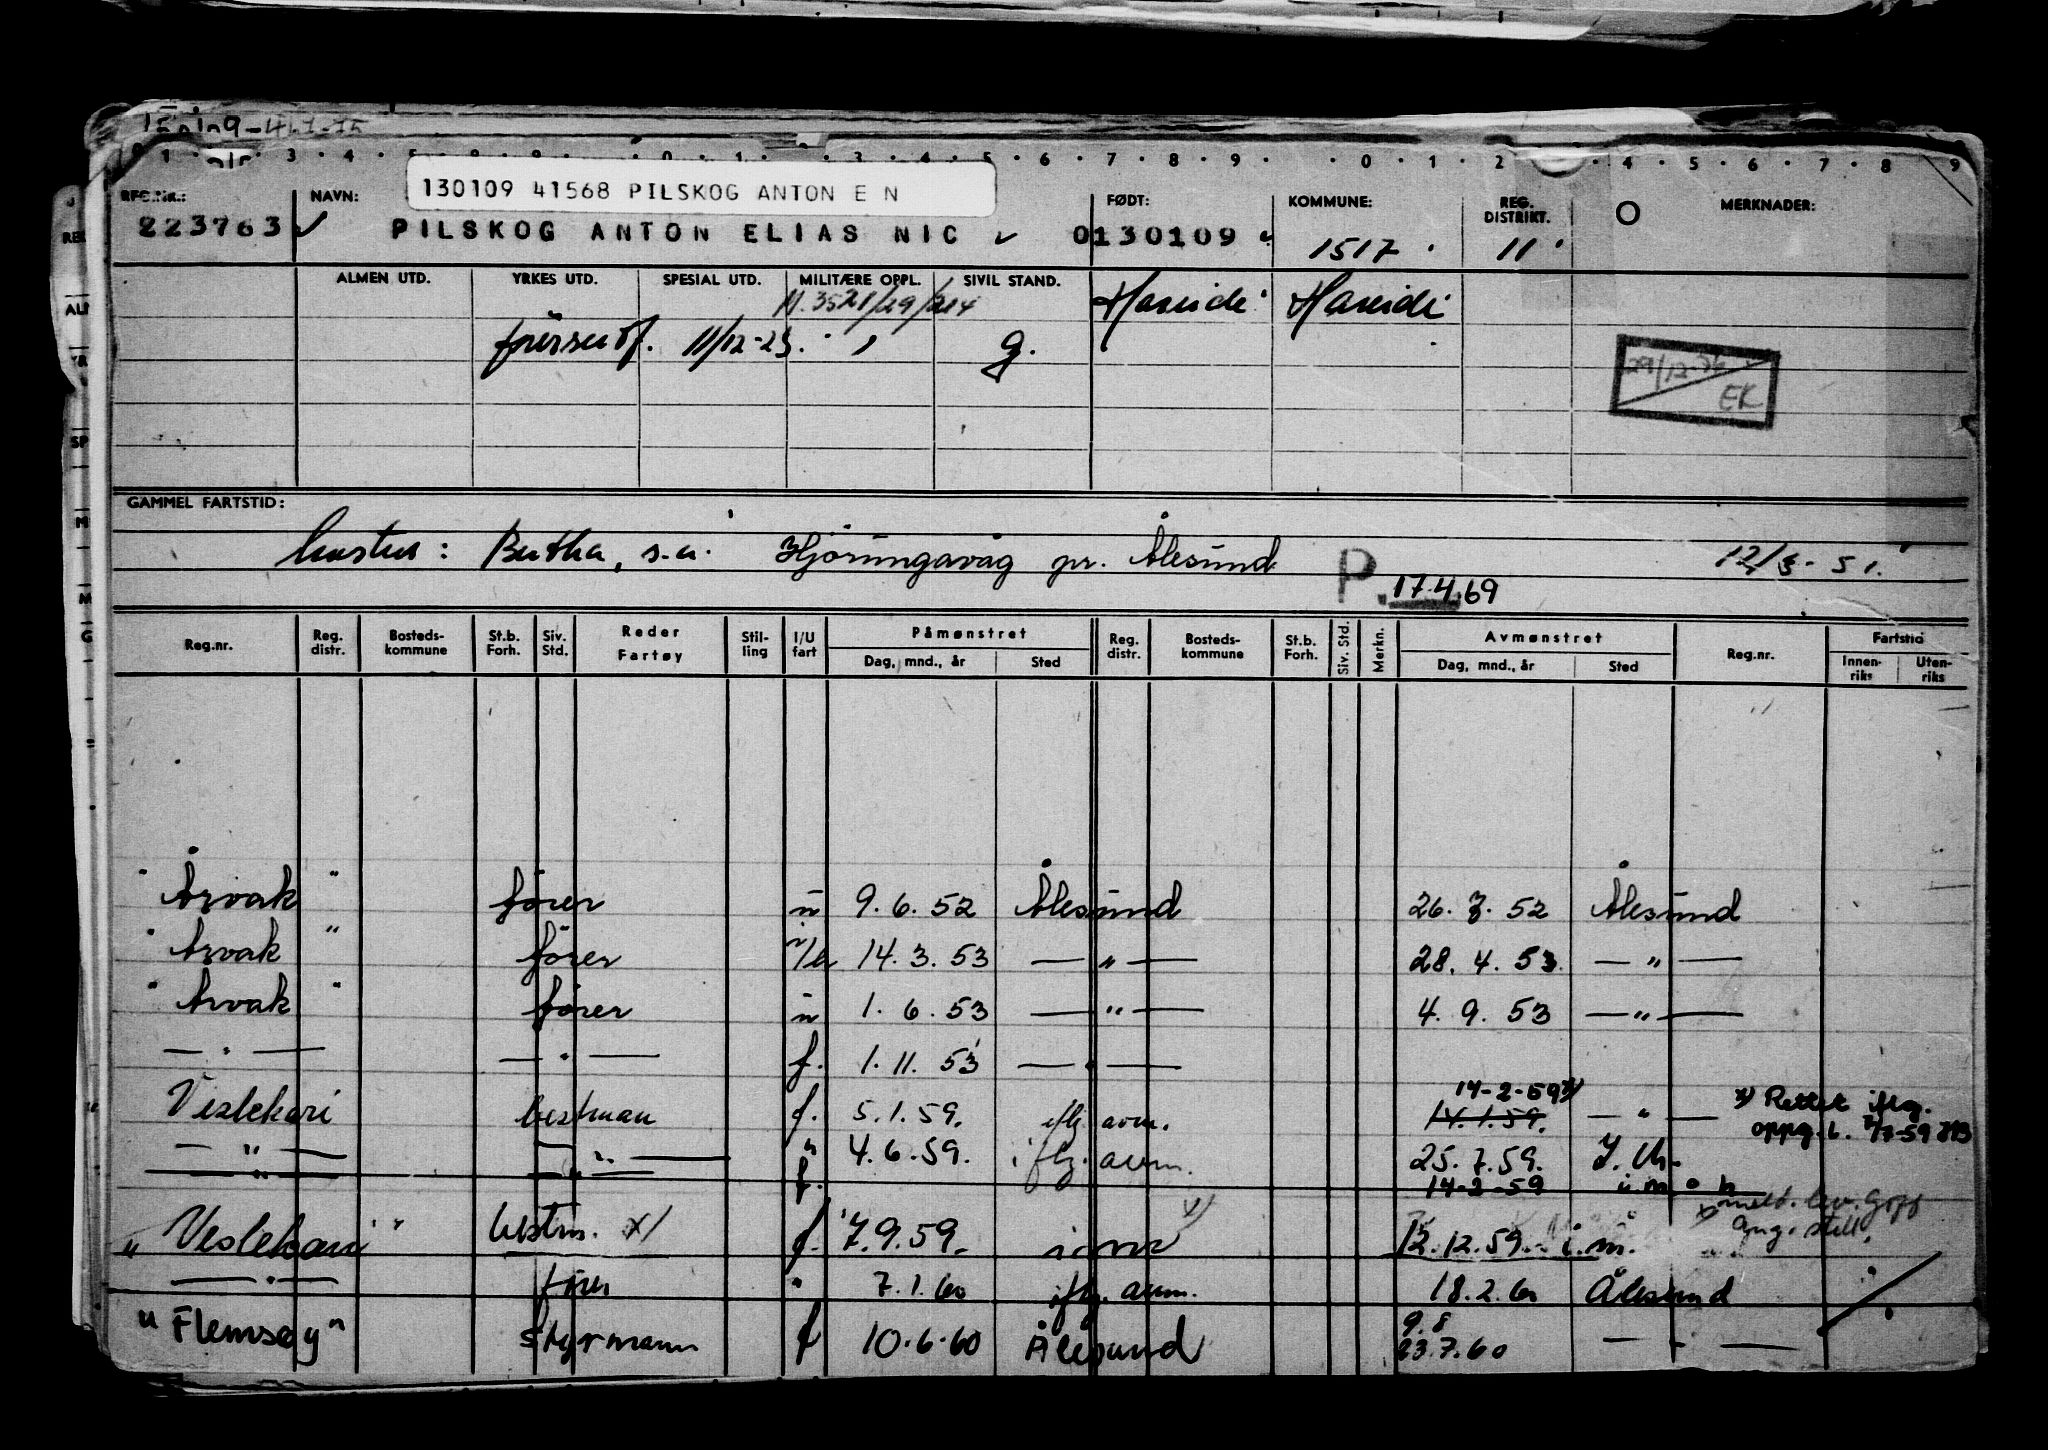 1 3 4 5 6 7 8 9 0 1 2 4 5 6 7 8 9
130109 41568 PILSKOG ANTON E N
REG.NR.: NAVN: FØDT: KOMMUNE: REG. DISTRIKT. MERKNADER:
223763 PILSKOG ANTON ELIAS NIC 0130109 1517 11
ALMEN UTD. YRKES UTD. SPESIAL UTD. MILITÆRE OPPL. SIVIL STAND.
Hareide Hareide
11/12-23. g.
29/12-76
EK
GAMMEL FARTSTID:
hustru: Bertha, s.a. Hjørungavåg pr. Ålesund 12/3-51.
P. 17.4.69
Reg.nr. Reg. distr. Bosteds-kommune St.b. Forh. Siv. Std. Reder Fartøy Stil-ling I/U fart Påmønstret Reg. distr. Bosteds-kommune St.b. Forh. Siv. Std. Merkn. Avmønstret Reg.nr. Fartstid
Dag, mnd., år Sted Dag, mnd., år Sted Innen-riks Uten-riks
"Årvak" fører u 9.6.52 Ålesund 26.7.52 Ålesund
"Årvak" fører 14.3.53 — " — 28.4.53 — " —
"Årvak" fører u 1.6.53 — " — 4.9.53 — " —
— " — — " — f. 1.11.53 — " —
14-2-59 x)
Veslekari bestman f. 5.1.59. iflg. avm. 14.1.59. — " — x) Rettet iflg.
oppg. b. 2/7-59
— " — — " — " 4.6.59. iflg. avm. 25.7.59.
— " — — " — f. 14-2-59
"Veslekari" bestm. x) f. 7.9.59. 12.12.59. i.m.
ang. still.
— " — fører " 7.1.60 iflg. avm. 18.2.60 Ålesund
9.8
"Flemsøy" styrmann f 10.6.60 Ålesund 23.7.60 — " —